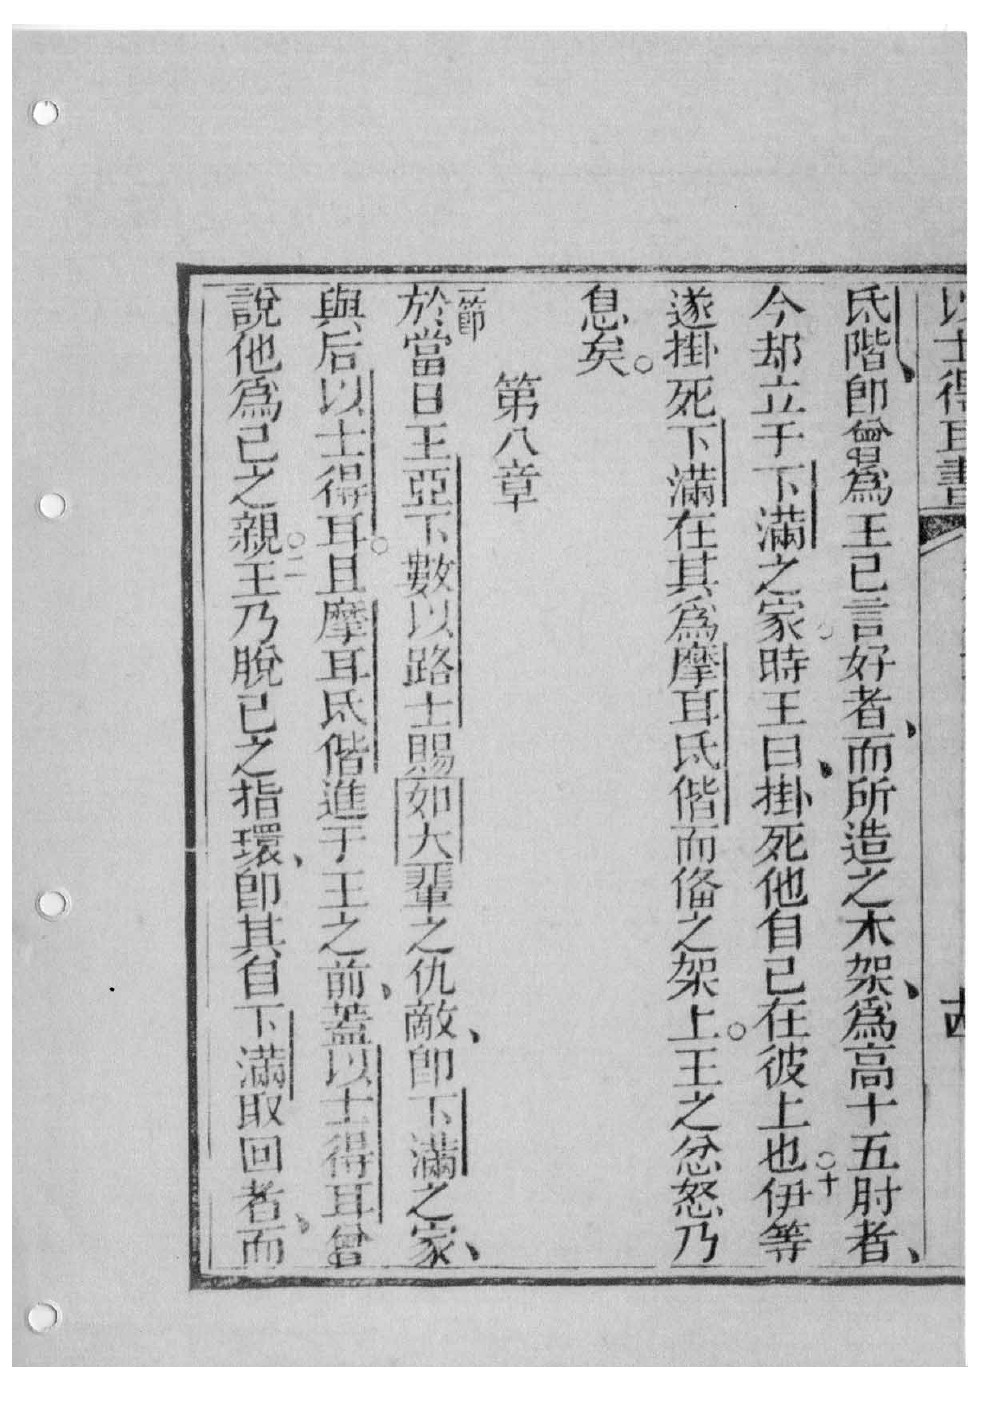 以士得耳書
氐階即曾爲王已言好者、而所造之木架、爲高十五肘者、
今却立于下滿之家○時王曰、掛死他自己在彼上也○十伊等
遂掛死下滿在其爲摩耳氐偕而俻之架上○王之忿怒乃
息矣○
第八章
一節於當日王亞下數以路士賜如大輩之仇敵、即下滿之家、
與后以士得耳○且摩耳氐偕進于王之前、蓋以士得耳曾
說他爲己之親○二王乃脫己之指環、即其自下滿取回者、而